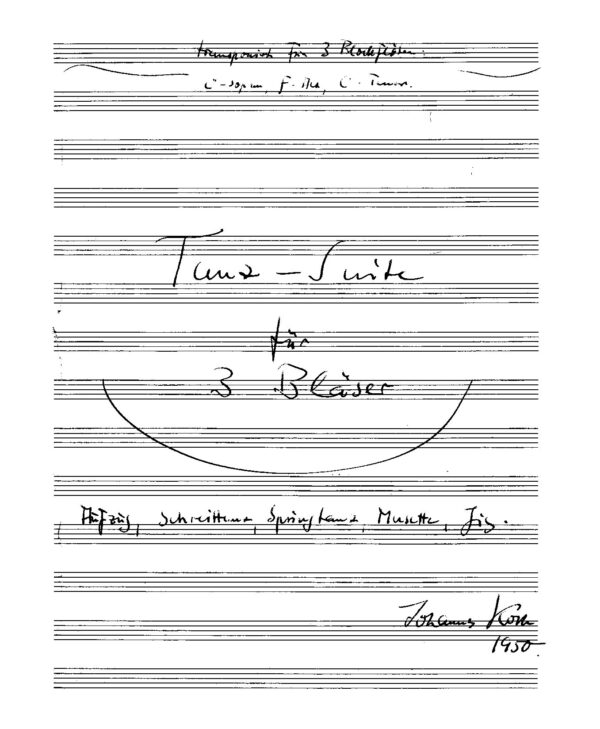 transponiert für 3 Blockflöten.
C-Sopran, F-Alt, C-Tenor.
Tanz-Suite
für
3 Bläser
Aufzug, Schreittanz, Springtanz, Musette, Jig.
Johannes Koch
1950